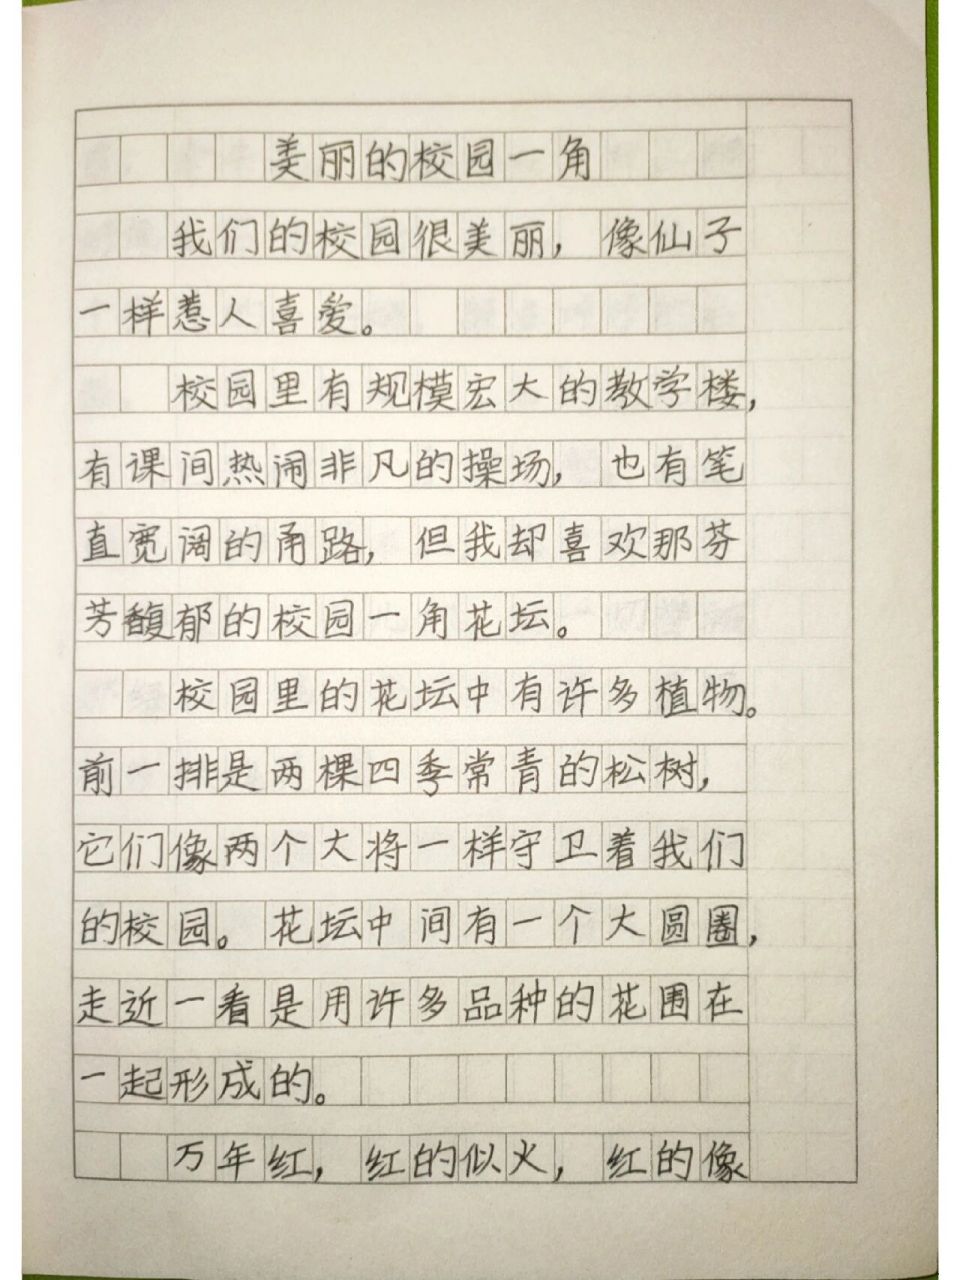 美丽的校园一角
我们的校园很美丽，像仙子
一样惹人喜爱。
校园里有规模宏大的教学楼，
有课间热闹非凡的操场，也有笔
直宽阔的甬路，但我却喜欢那芬
芳馥郁的校园一角花坛。
校园里的花坛中有许多植物。
前一排是两棵四季常青的松树，
它们像两个大将一样守卫着我们
的校园。花坛中间有一个大圆圈，
走近一看是用许多品种的花围在
一起形成的。
万年红，红的似火，红的像